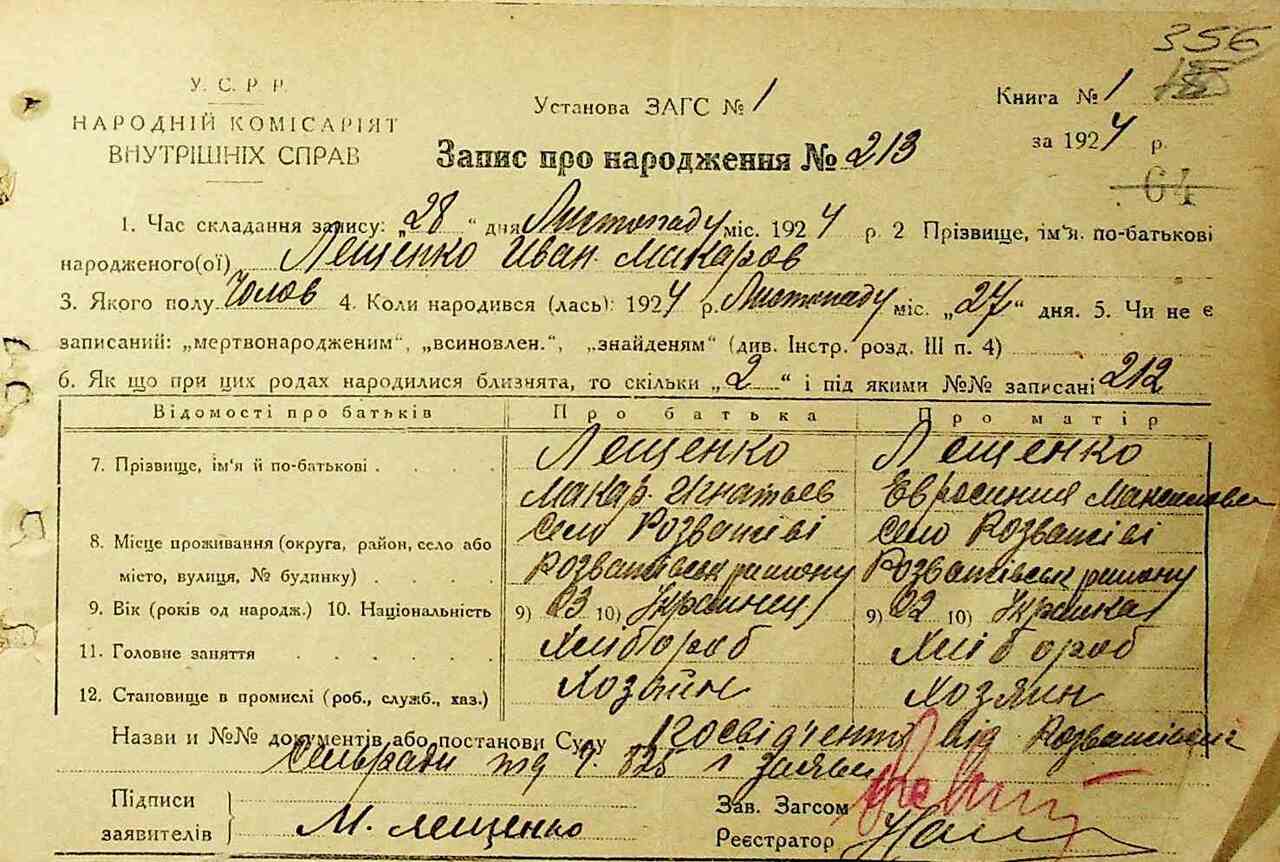 356
У. С. Р. Р.
НАРОДНІЙ КОМІСАРІЯТ
ВНУТРІШНІХ СПРАВ
Установа ЗАГС № 1
Книга № 1
за 1924 р.
Запис про народження № 213
64
1. Час складання запису: „28“ дня Листопаду міс. 1924 р. 2 Прізвище, ім'я. по-батькові
народженого(ої) Лещенко Иван Макаров
3. Якого полу Чолов 4. Коли народився (лась): 1924 р. Листопаду міс. „27“ дня. 5. Чи не є
записаний: „мертвонародженим“, „всиновлен.“, „знайденям“ (див. Інстр. розд. III п. 4)
6. Як що при цих родах народилися близнята, то скільки „2“ і під якими №№ записані 212
Відомості про батьків Про батька Про матір
7. Прізвище, ім'я й по-батькові Лещенко Лещенко
Макар Игнатьев Евросиния
8. Місце проживання (округа, район, село або село Розватіві село Розватіві
місто, вулиця, № будинку) Розватівськ району Розватівськ району
9. Вік (років од народж.) 10. Національність 9) 23 10) Украинец 9) 22 10) Украинка
11. Головне заняття Хлібороб Хлібороб
12. Становище в промислі (роб., служб., хаз.) Хозяин Хозяин
Назви и №№ документів або постанови Суду від
Сельради
Підписи
заявителів М. Лещенко
Зав. Загсом
Реєстратор